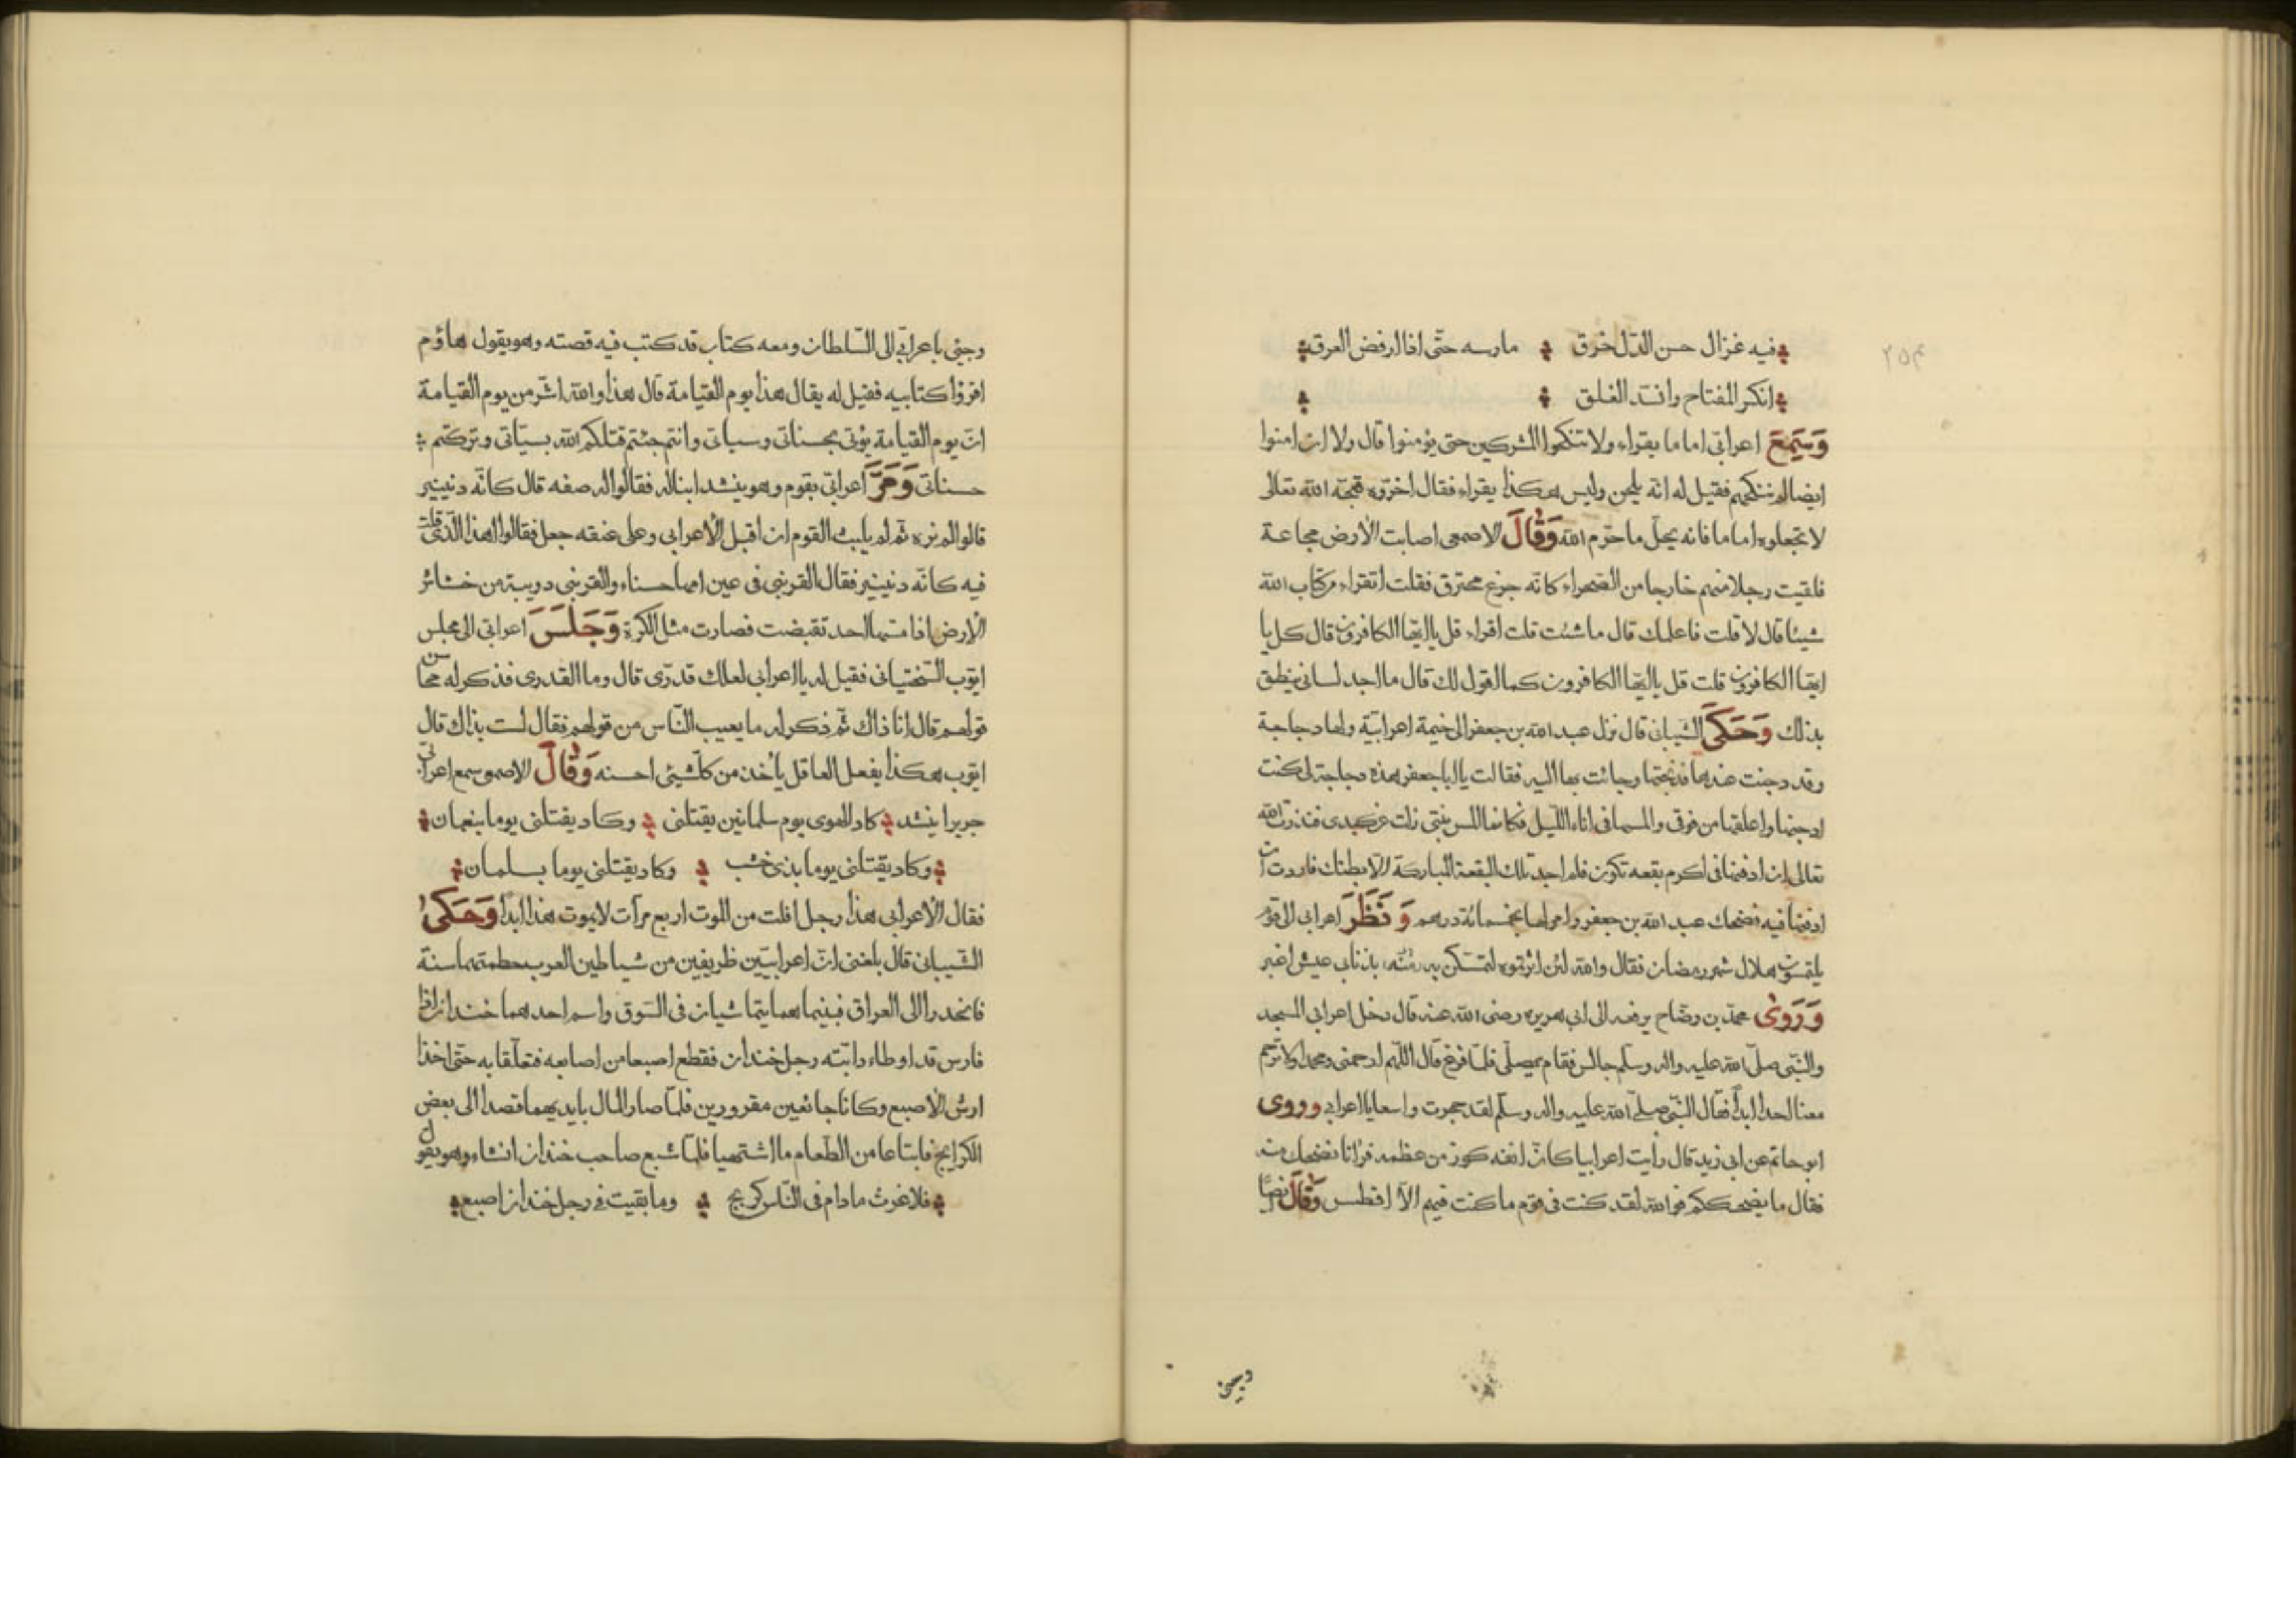 فيه غزال حسن الدّل خرق مارسه حتّى اذا ارفض العرق
انكر المفتاح وانسد الغلق
وَسَمِعَ اعرابى اماما يقراء ولا تنكحوا المشركين حتى يؤمنوا قال ولا ان امنوا
ايضا لم ننكحهم فقيل له انّه يلحن وليس هكذا يقراء فقال اخرّوه قبحه الله تعالى
لا تجعلوه اماما فانه يحلّ ما حرّم الله وَقَالَ الاصمعى اصابت الأرض مجاعة
فلقيت رجلا منهم خارجا من الصّحراء كانّه جزع محترق فقلت اتقراء من كتاب الله
شيئا قال لا قلت فاعلمك قال ما شئت قلت اقراء قل يا ايّها الكافرون قال كل يا
ايّها الكافرون قلت قل يا ايّها الكافرون كما اقول لك قال ما اجد لسانى ينطق
بذلك وَحَكَى الشيبانى قال نزل عبد الله بن جعفر الى خيمة اعرابيّة ولها دجاجة
وقد دجنت عندها فذبحتها وجائت بها اليه فقالت يا ابا جعفر هذه دجاجة لى كنت
ادجنها واعلفها من قوتى والمسها فى اناء اللّيل فكانما المس بنتى زلت عن كبدى فنذرت لله
تعالى ان ادفنها فى اكرم بقعه تكون فلم اجد تلك البقعة المباركة الّا بطنك فاردت ان
ادفنها فيه فضحك عبد الله بن جعفر وامر لها بخمسمائة درهم وَنَظَرَ اعرابى الى قوم
يلتمسون هلال شهر رمضان فقال والله لئن اثرتموه لتمسكن منه بذنابى عيش اغبر
وَرَوىٰ محمّد بن وضّاح يرفعه الى ابى هريره رضى الله عنه قال دخل اعرابى المسجد
والنّبى صلّى الله عليه واله وسلّم جالس فقام يصلّى فلمّا فرغ قال اللّهم ارحمنى ومحمدا ولا ترحم
معنا احدا ابدا فقال النّبى صلّى الله عليه واله وسلّم لقد حجرت واسعا يا اعرابى وروى
ابو حاتم عن ابى زيد قال رأيت اعرابيا كانّ انفه كوز من عظمه فرانا نضحك منه
فقال ما يضحككم فوالله لقد كنت فى قوم ما كنت فيهم الّا افطس وَقَالَ
وجيئ
وجيئ باعرابى الى السّلطان ومعه كتاب قد كتب فيه قصته وهو يقول هاؤم
اقرؤا كتابيه فقيل له يقال هذا يوم القيامة قال هذا والله اشرّ من يوم القيامة
انّ يوم القيامة يؤتى بحسناتى وسياتى وانتم جئتم قتلكم الله بسيّاتى وتركتم
حسناتى وَمَرَّ اعرابى بقوم وهو ينشد ابنا له فقالوا له صفه قال كانّه دنينير
قالوا لم نره ثمّ لم يلبث القوم ان اقبل الأعرابى وعلى عنقه جعل فقالوا هذا الّذى قلت
فيه كانّه دنينير فقال القرنبى فى عين امها حسناء والقرنبى دويبة من خشائر
الأرض اذا مسّها احد تقبضت فصارت مثل الكرة وَجَلَسَ اعرابى الى مجلس
ايّوب السّختيانى فقيل له يا اعرابى لعلك قدرى قال وما القدرى فذكر له محاسن
قولهم قال انا ذاك ثمّ ذكر له ما يعيب النّاس من قولهم فقال لست بذاك قال
ايّوب هكذا يفعل العاقل يأخذ من كلّ شيئ احسنه وَقَالَ الاصمعى سمع اعرابى
جريرا ينشد كاد الهوى يوم سلمانين يقتلنى وكاد يقتلنى يوما بنعمان
وكاد يقتلنى يوما بذى خشب وكاد يقتلنى يوما بسلمان
فقال الأعرابى هذا رجل افلت من الموت اربع مرآت لا يموت هذا ابدا وَحَكىٰ
الشّيبانى قال بلغنى انّ اعرابييّن ظريفين من شياطين العرب حطمتهما سنة
فانحدرا الى العراق فبينما هما يتماشيان فى السّوق واسم احدهما خندان اذا
فارس قد اوطاء دابّته رجل خندان فقطع اصبعا من اصابعه فتعلّقا به حتّى اخذا
ارش الأصبع وكانا جائعين مقرورين فلمّا صار المال بايديهما قصدا الى بعض
الكرابج فابتاعا من الطّعام ما اشتهيا فلمّا شبع صاحب خندان انشاء وهو يقول
فلا غرث ما دام فى النّاس كربج وما بقيت فى رجل خندان اصبع